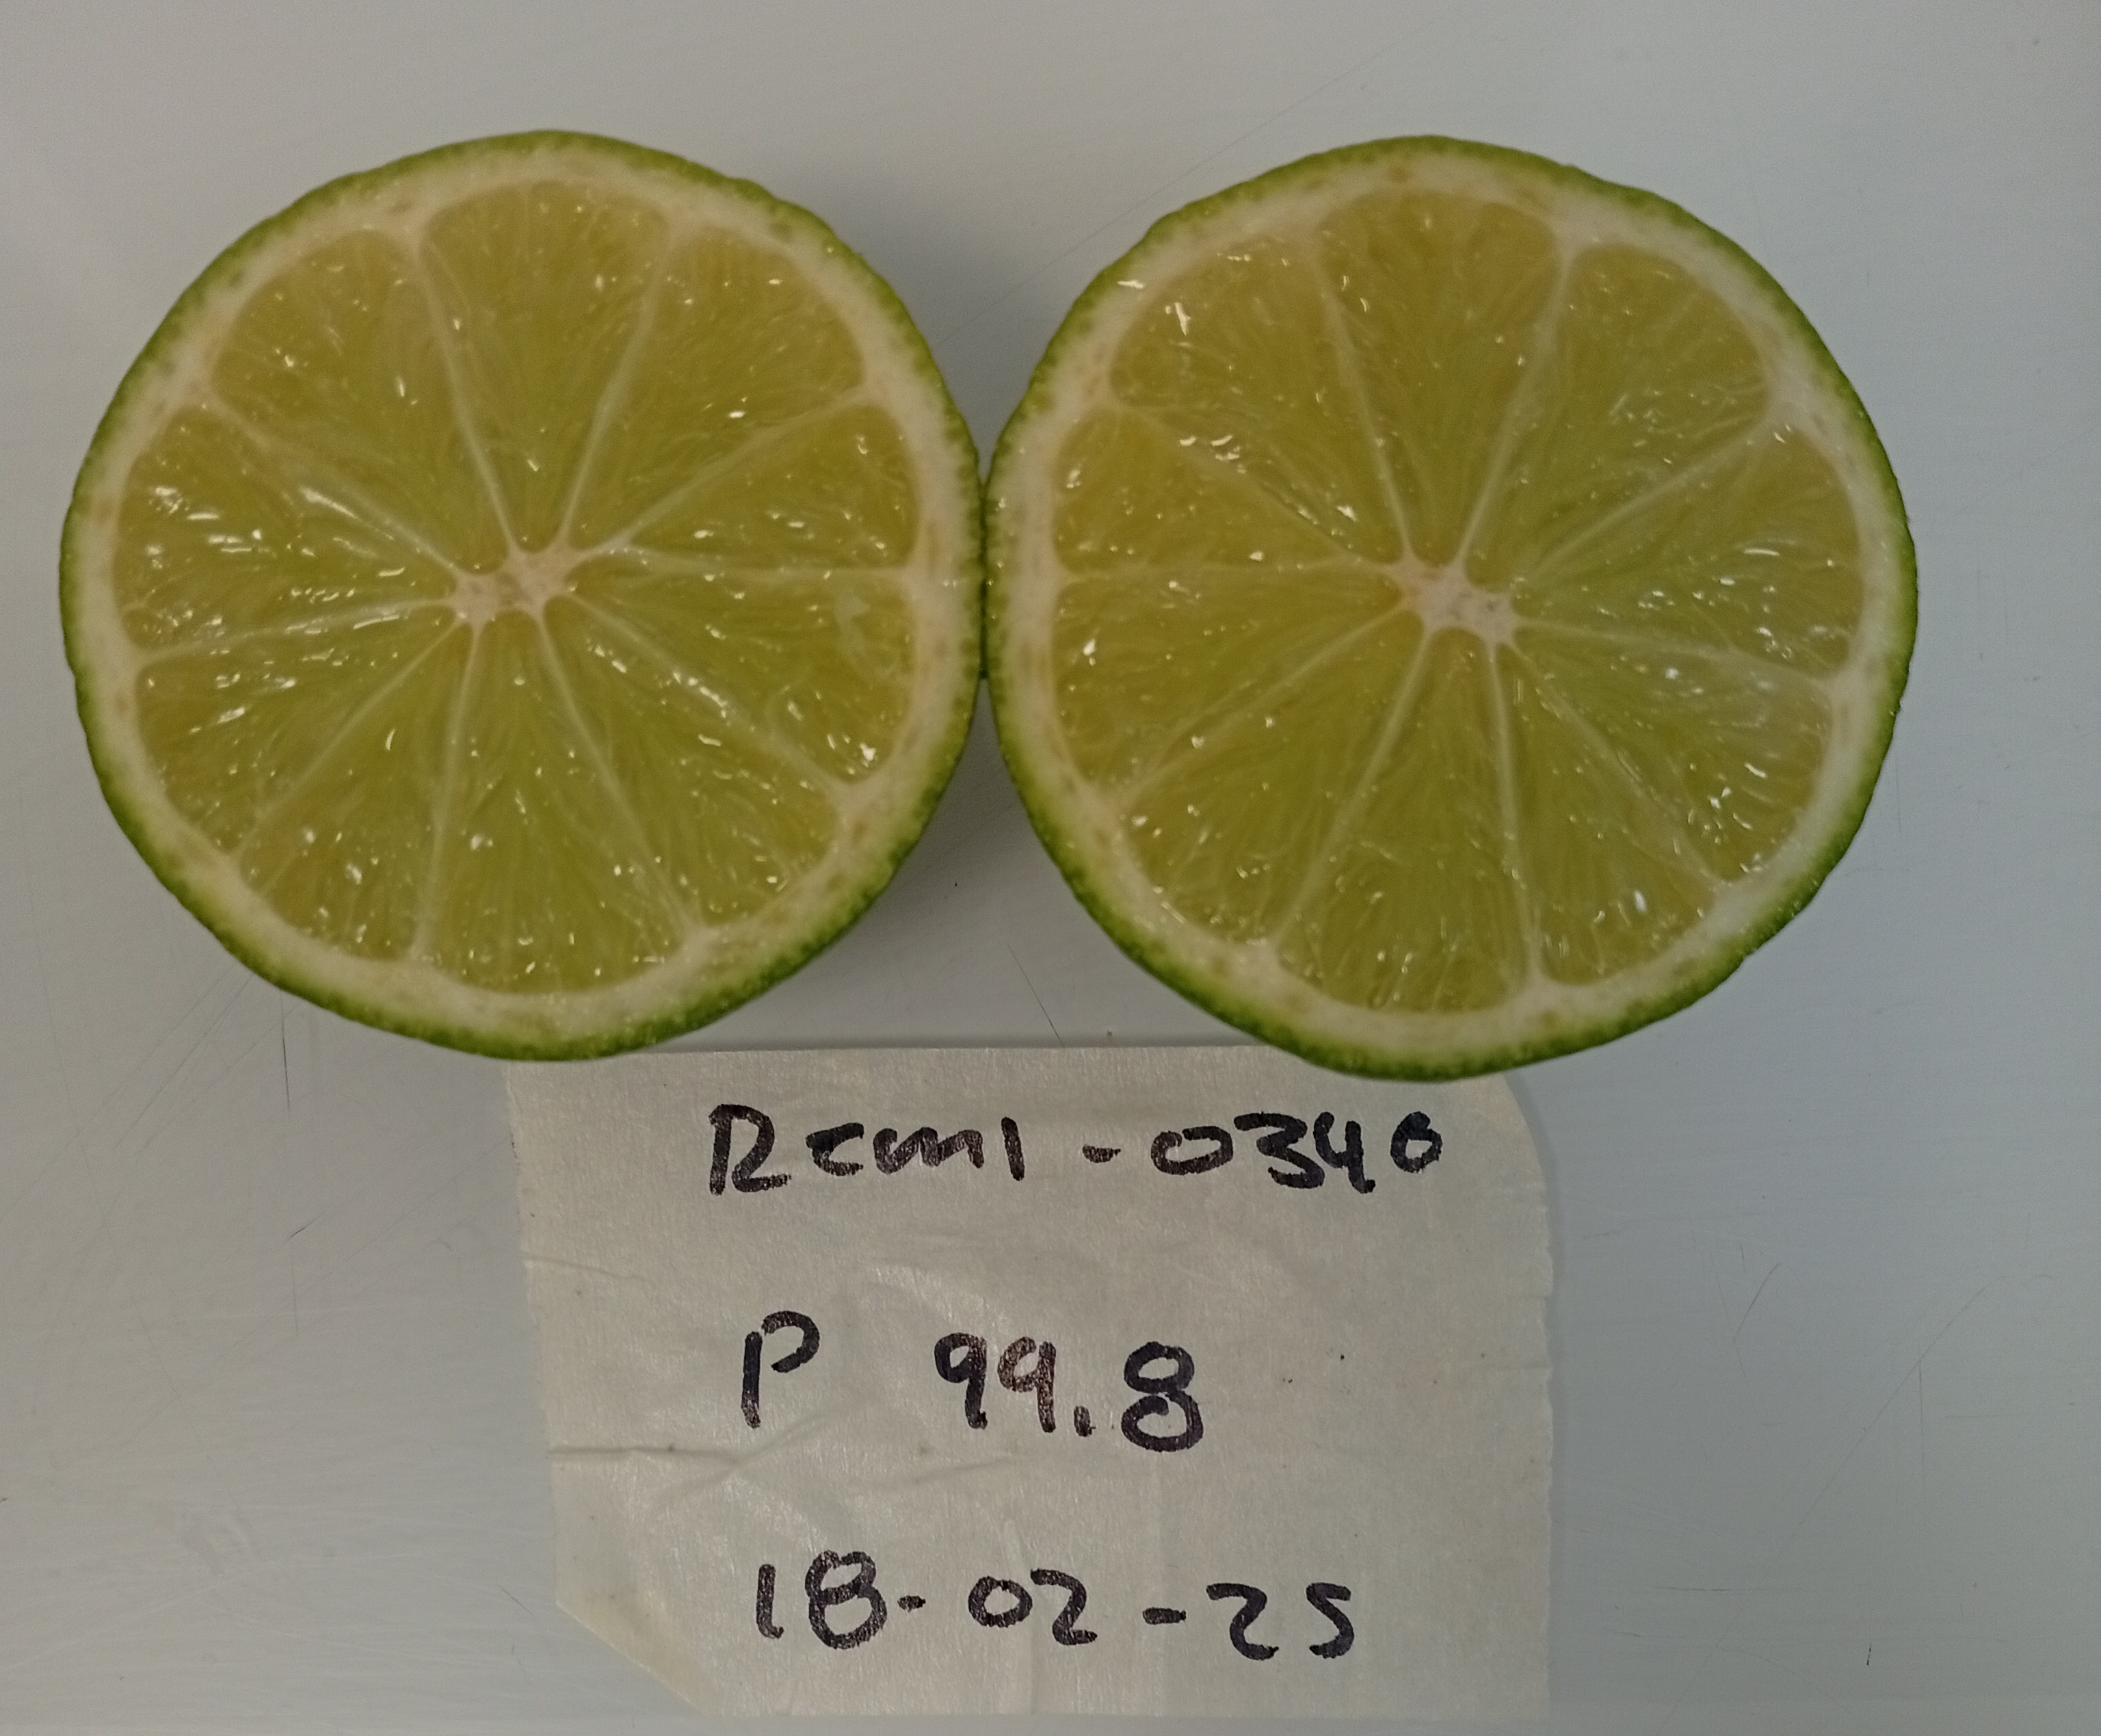 Rcml-0340
P 99.8
18-02-25